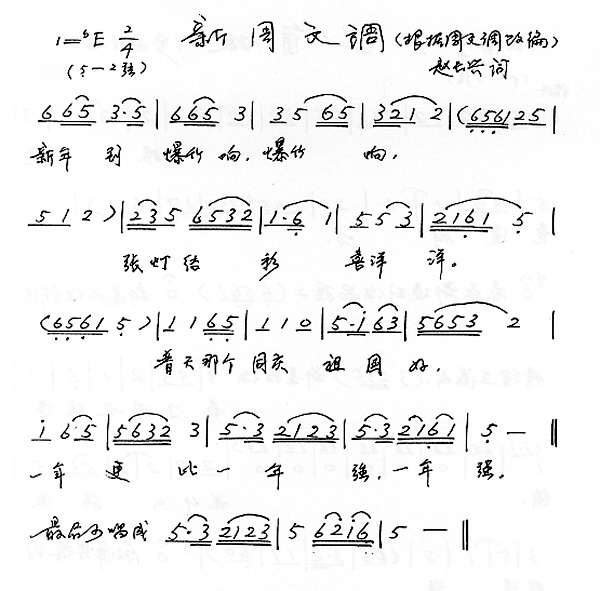 1=ᵇE 2/4 新闰文調 (根据闰文调改编)
(5—2弦) 赵长兴词
6 6 5 3·5 | 6 6 5 3 | 3 5 6 5 | 3 2 1 2 | (6 5 6 1 2 5 |
新年 到 爆竹 响, 爆竹 响,
5 1 2 ) | 2 3 5 6 5 3 2 | 1·6 1 | 5 5 3 | 2 1 6 1 5 |
张灯结 彩 喜洋 洋。
(6 5 6 1 5 ) | 1 1 6 5 | 1 1 0 | 5·i 6 3 | 5 6 5 3 2 |
普天那个 同庆 祖 国 好,
i 6·5 | 5 6 3 2 3 | 5·3 2 1 2 3 | 5·3 2 1 6 1 | 5 — ‖
一年 更 比 一 年 强, 一年 强。
最后句唱成 5·3 2 1 2 3 | 5 6 2 1 6 | 5 — ‖